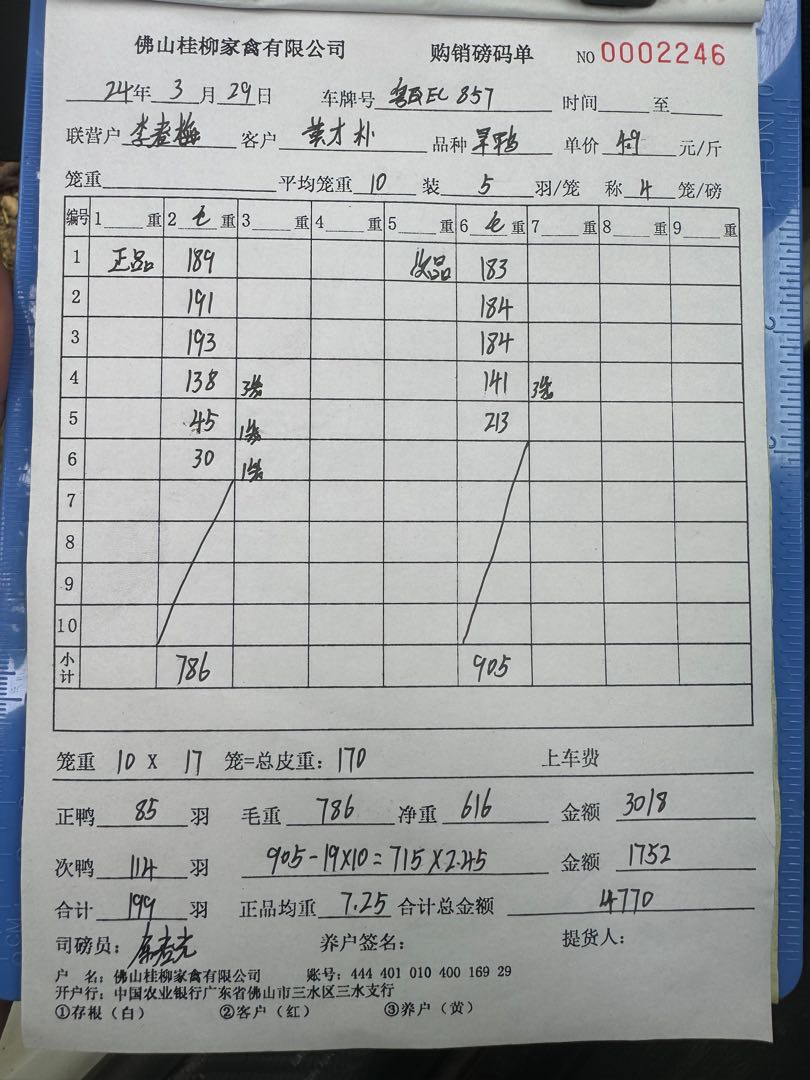 佛山桂柳家禽有限公司 购销磅码单 NO 0002246
24年 3月 29日 车牌号 EC 857 时间 至
联营户 李 梅 客户 才朴 品种 旱鸭 单价 4.9 元/斤
笼重 平均笼重 10 装 5 羽/笼 称 4 笼/磅
编号 1 重 2 毛 重 3 重 4 重 5 重 6 毛 重 7 重 8 重 9 重
1 正品 189 次品 183
2 191 184
3 193 184
4 138 3笼 141 3笼
5 45 1笼 213
6 30 1笼
7
8
9
10
小计 786 905
笼重 10 X 17 笼=总皮重: 170 上车费
正鸭 85 羽 毛重 786 净重 616 金额 3018
次鸭 114 羽 905-19X10=715X2.45 金额 1752
合计 199 羽 正品均重 7.25 合计总金额 4770
司磅员: 养户签名: 提货人:
户 名: 佛山桂柳家禽有限公司 账号: 444 401 010 400 169 29
开户行: 中国农业银行广东省佛山市三水区三水支行
①存根(白) ②客户(红) ③养户(黄)